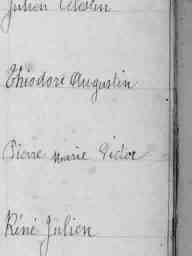 Julien Célestin
Théodore Augustin
Pierre Marie Victor
Réné Julien